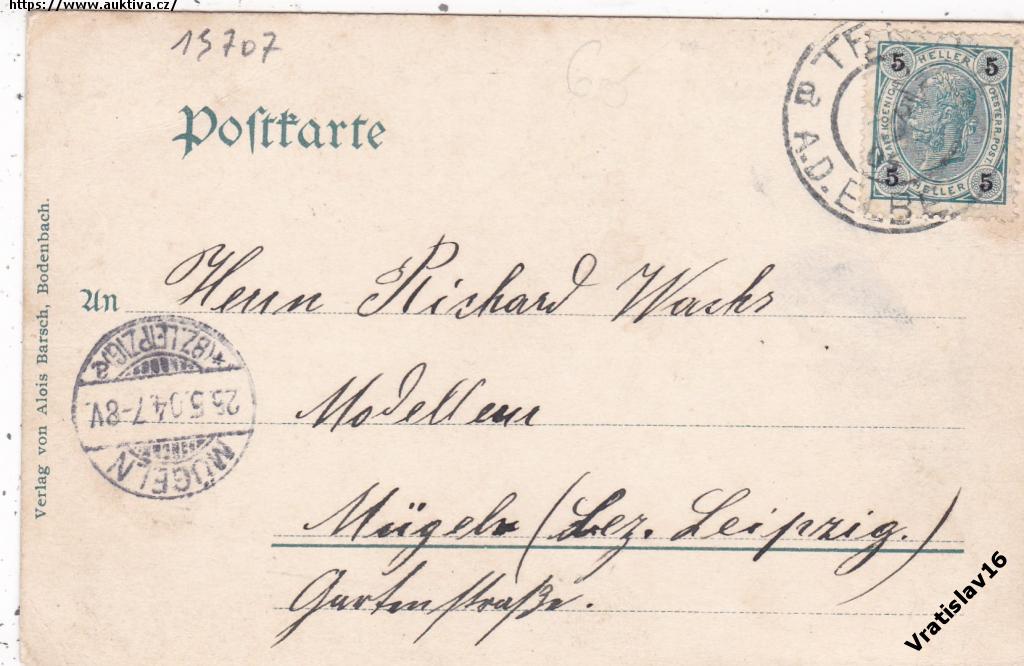 https://www.auktiva.cz/
15707
65
Postkarte
5 HELLER 5
KAIS. KOENIGL. OESTERR. POST.
5 HELLER 5
A.D. ELBE
An Herrn Richard Wachs
Modelleur
Mügeln (Bez. Leipzig.)
Gartenstraße.
MÜGELN
25.5.04.7-8V.
*(BZ. LEIPZIG) a
Verlag von Alois Barsch, Bodenbach.
Vratislav16